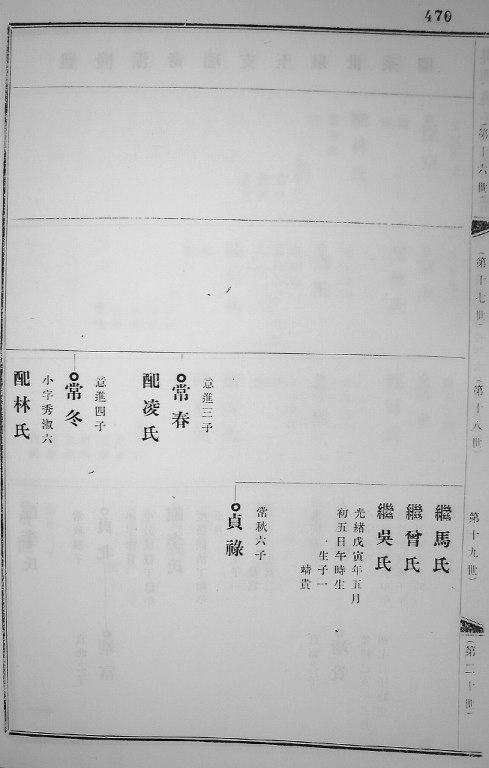 470
第十六世
第十七世
第十八世
意進三子
常春
配凌氏
意進四子
常冬
小字秀淑六
配林氏
第十九世
繼馬氏
繼曾氏
繼吳氏
光緒戊寅年五月
初五日午時生
生子一
靖貴
常秋六子
貞祿
第二十世